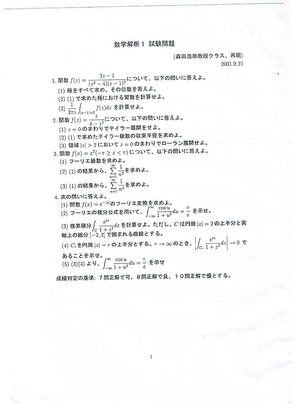 数学解析1 試験問題
(森田浩助教授クラス、再現)
2001.9.25
1. 関数 f(z) = について、以下の問いに答えよ。
(1) 極をすべて求め、その位数を答えよ。
(2) (1) で求めた極における留数を計算せよ。
(3) f(z)dz を計算せよ。
2. 関数 f(z) = z/(4 − z²) について、以下の問いに答えよ。
(1) z = 0 のまわりでテイラー展開をせよ。
(2) (1) で求めたテイラー級数の収束半径を求めよ。
(3) 領域 |z| > 2 において z = 0 のまわりでローラン展開せよ。
3. 関数 f(x) = x²(−π ≤ x < π) について、以下の問いに答えよ。
(1) フーリエ級数を求めよ。
(2) (1) の結果から、 を求めよ。
(3) (1) の結果から、 を求めよ。
4. 次の問いに答えよ。
(1) 関数 のフーリエ変換を求めよ。
(2) フーリエの積分公式を用いて、 を示せ。
(3) 複素積分 を計算せよ。ただし、C は円周 |z| = 2 の上半分と実
軸上の線分 [−2, 2] で囲まれる曲線とする。
(4) Cᵣ を円周 |z| = r の上半分とする。r → ∞ のとき、 → 0 で
あることを示せ。
(5) (3)(4) より、 を示せ
成績判定の基準: 7問正解で可、8問正解で良、10問正解で優とする。
1